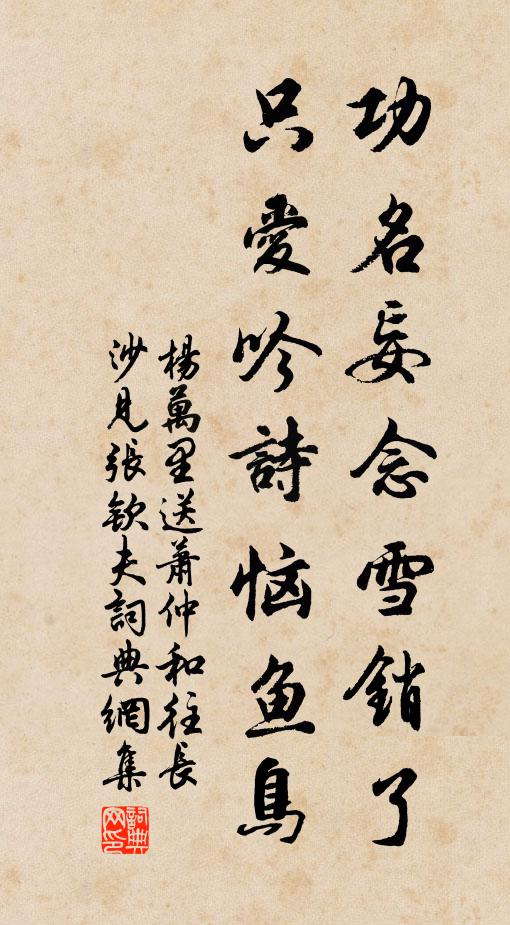 功名妄念雪銷了
只愛吟詩惱魚鳥
楊萬里送蕭仲和往長
沙見張欽夫詞典網集
詞典
网印